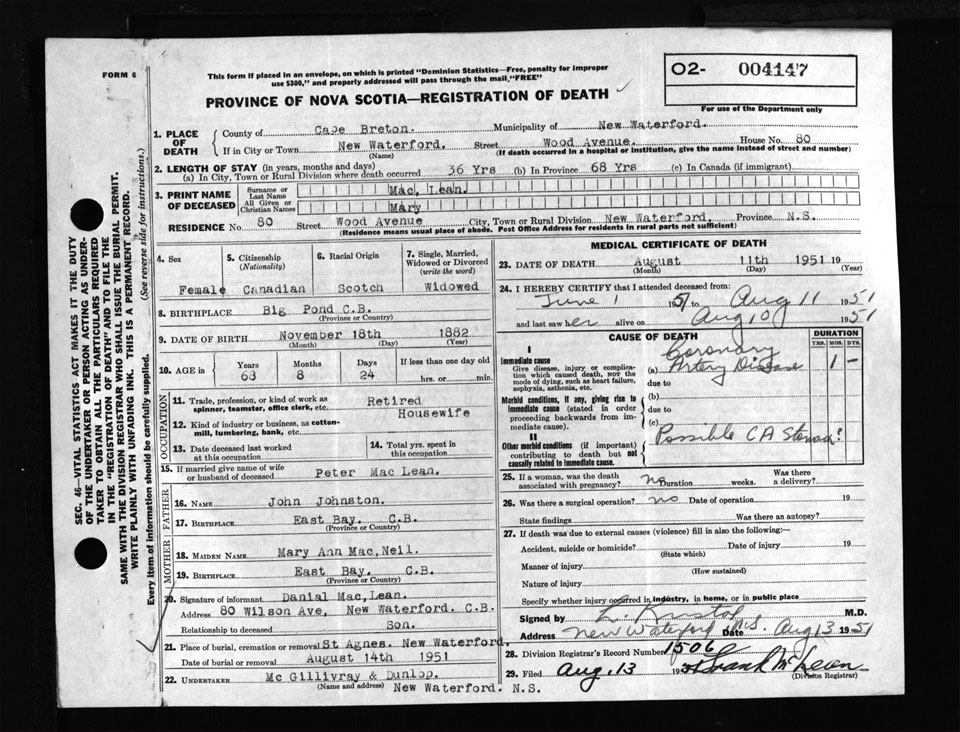 FORM 6
This form if placed in an envelope, on which is printed "Dominion Statistics—Free, penalty for improper
use $300," and properly addressed will pass through the mail, "FREE"
PROVINCE OF NOVA SCOTIA—REGISTRATION OF DEATH
O2- 004147
For use of the Department only
SEC. 46—VITAL STATISTICS ACT MAKES IT THE DUTY
OF THE UNDERTAKER OR PERSON ACTING AS UNDER-
TAKER TO OBTAIN ALL THE PARTICULARS REQUIRED
IN THE "REGISTRATION OF DEATH" AND TO FILE THE
SAME WITH THE DIVISION REGISTRAR WHO SHALL ISSUE THE BURIAL PERMIT.
WRITE PLAINLY WITH UNFADING INK. THIS IS A PERMANENT RECORD.
Every item of information should be carefully supplied. (See reverse side for instructions.)
1. PLACE OF DEATH County of Cape Breton. Municipality of New Waterford.
If in City or Town New Waterford. Street Wood Avenue. House No. 80
(Name) (If death occurred in a hospital or institution, give the name instead of street and number)
2. LENGTH OF STAY (in years, months and days)
(a) In City, Town or Rural Division where death occurred 36 Yrs (b) In Province 68 Yrs (c) In Canada (if immigrant)
3. PRINT NAME OF DECEASED Surname or Last Name Mac, Lean.
All Given or Christian Names Mary
RESIDENCE No. 80 Street Wood Avenue City, Town or Rural Division New Waterford. Province N.S.
(Residence means usual place of abode. Post Office Address for residents in rural parts not sufficient)
4. Sex 5. Citizenship (Nationality) 6. Racial Origin 7. Single, Married, Widowed or Divorced (write the word)
Female Canadian Scotch Widowed
8. BIRTHPLACE Big Pond C.B.
(Province or Country)
9. DATE OF BIRTH November 18th 1882
(Month) (Day) (Year)
10. AGE in Years Months Days If less than one day old
68 8 24 hrs. or min.
OCCUPATION
11. Trade, profession, or kind of work as spinner, teamster, office clerk, etc. Retired
12. Kind of industry or business, as cotton-mill, lumbering, bank, etc. Housewife
13. Date deceased last worked at this occupation 14. Total yrs. spent in this occupation
15. If married give name of wife or husband of deceased Peter Mac Lean.
FATHER
16. NAME John Johnston.
17. BIRTHPLACE East Bay. C.B.
(Province or Country)
MOTHER
18. MAIDEN NAME Mary Ann Mac, Neil.
19. BIRTHPLACE East Bay. C.B.
(Province or Country)
20. Signature of informant Danial Mac, Lean.
Address 80 Wilson Ave, New Waterford. C.B.
Relationship to deceased Son.
21. Place of burial, cremation or removal St Agnes. New Waterford.
Date of burial or removal August 14th 1951
22. UNDERTAKER Mc Gillivray & Dunlop.
(Name and address) New Waterford. N.S.
MEDICAL CERTIFICATE OF DEATH
23. DATE OF DEATH August 11th 1951 19
(Month) (Day) (Year)
24. I HEREBY CERTIFY that I attended deceased from:
June 1 1951 to Aug 11 1951
and last saw her alive on Aug 10 1951
CAUSE OF DEATH DURATION
YRS. MOS. DYS.
I
Immediate cause
Give disease, injury or complication which caused death, not the mode of dying, such as heart failure, asphyxia, asthenia, etc.
(a) Coronary Artery Disease 1 –
due to
Morbid conditions, if any, giving rise to immediate cause (stated in order proceeding backwards from immediate cause).
(b)
due to
(c)
II
Other morbid conditions (if important) contributing to death but not causally related to immediate cause.
Possible CA Stomach?
25. If a woman, was the death associated with pregnancy? no Duration weeks. Was there a delivery?
26. Was there a surgical operation? no Date of operation 19
State findings Was there an autopsy?
27. If death was due to external causes (violence) fill in also the following:
Accident, suicide or homicide? Date of injury 19
(State which)
Manner of injury
(How sustained)
Nature of injury
Specify whether injury occurred in industry, in home, or in public place
Signed by M.D.
Address New Waterford N.S. Date Aug 13 1951
28. Division Registrar's Record Number 1506
29. Filed Aug. 13 1951 Frank McLean
(Division Registrar)